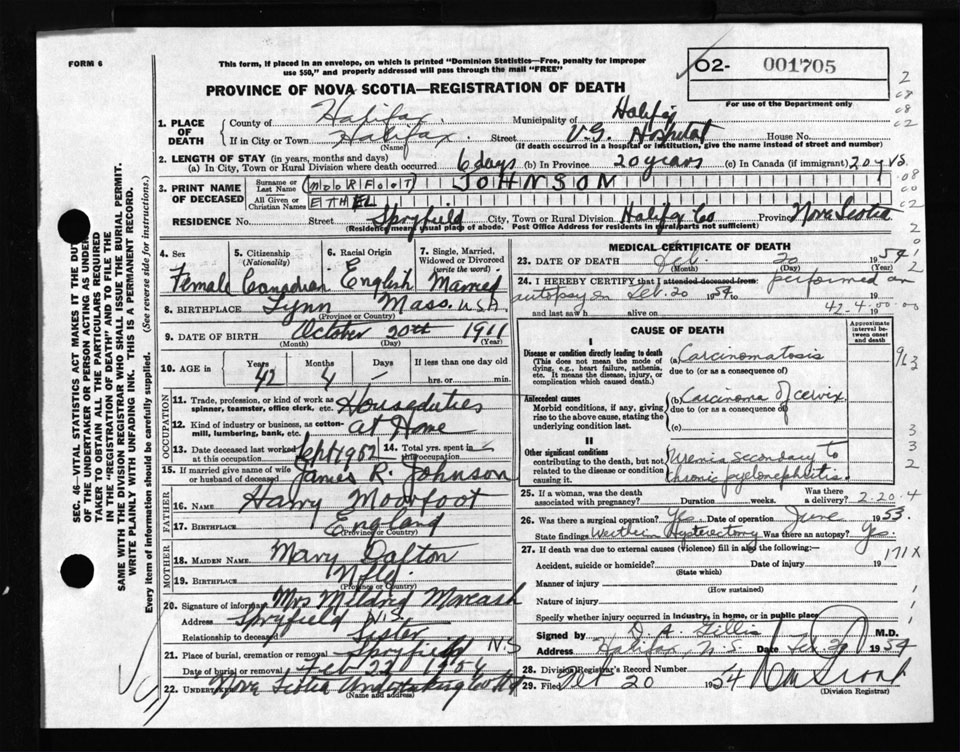 FORM 6
This form, if placed in an envelope, on which is printed "Dominion Statistics—Free, penalty for improper
use $50," and properly addressed will pass through the mail "FREE"
O2- 001705
For use of the Department only
PROVINCE OF NOVA SCOTIA—REGISTRATION OF DEATH
1. PLACE OF DEATH
County of Halifax. Municipality of Halifax
If in City or Town Halifax. (Name) Street V.G. Hospital House No.
(If death occurred in a hospital or institution, give the name instead of street and number)
2. LENGTH OF STAY (in years, months and days)
(a) In City, Town or Rural Division where death occurred 6 days (b) In Province 20 years (c) In Canada (if immigrant) 20 yrs.
3. PRINT NAME OF DECEASED
Surname or Last Name (MOORFOOT) JOHNSON
All Given or Christian Names ETHEL
RESIDENCE No. Street Spryfield City, Town or Rural Division Halifax Co Province Nova Scotia
(Residence means usual place of abode. Post Office Address for residents in rural parts not sufficient)
4. Sex Female
5. Citizenship (Nationality) Canadian
6. Racial Origin English
7. Single, Married, Widowed or Divorced (write the word) Married
8. BIRTHPLACE Lynn Mass. USA.
(Province or Country)
9. DATE OF BIRTH October 20th 1911
(Month) (Day) (Year)
10. AGE in Years 42 Months 4 Days If less than one day
hrs. or min.
OCCUPATION
11. Trade, profession, or kind of work as spinner, teamster, office clerk, etc. Houseduties
12. Kind of industry or business, as cotton-mill, lumbering, bank, etc. at Home
13. Date deceased last worked Sept 1952 14. Total yrs. spent in
15. If married give name of wife or husband of deceased James R. Johnson
FATHER
16. NAME Harry Moorfoot
17. BIRTHPLACE England
(Province or Country)
MOTHER
18. MAIDEN NAME Mary Dalton
19. BIRTHPLACE Nfld
(Province or Country)
20. Signature of informant Mrs
Address Spryfield N.S.
Relationship to deceased Sister
21. Place of burial, cremation or removal Spryfield N.S
Date of burial or removal Feb 22 1954
22. Undertaker Nova Scotia Undertaking Co
(Name and address)
MEDICAL CERTIFICATE OF DEATH
23. DATE OF DEATH Feb. 20 1954
(Month) (Day) (Year)
24. I HEREBY CERTIFY that I attended deceased from performed an
autopsy on Feb. 20 1954 to 19
and last saw h alive on 19
42-4-00-00
CAUSE OF DEATH
Approximate interval between onset and death
I
Disease or condition directly leading to death
(This does not mean the mode of dying, e.g., heart failure, asthenia, etc. It means the disease, injury, or complication which caused death.)
(a) Carcinomatosis
due to (or as a consequence of)
Antecedent causes
Morbid conditions, if any, giving rise to the above cause, stating the underlying condition last.
(b) Carcinoma of cervix.
due to (or as a consequence of)
(c)
II
Other significant conditions
contributing to the death, but not related to the disease or condition causing it.
Uremia secondary to
chronic pyelonephritis.
25. If a woman, was the death associated with pregnancy? Duration weeks. Was there a delivery? 2-20-4
26. Was there a surgical operation? Yes Date of operation June 1953.
State findings Wertheim Hysterectomy Was there an autopsy? Yes
27. If death was due to external causes (violence) fill in also the following:—
171X
Accident, suicide or homicide? Date of injury 19
(State which)
Manner of injury
(How sustained)
Nature of injury
Specify whether injury occurred in industry, in home, or in public place
Signed by D. A. Gillis M.D.
Address Halifax, N.S. Date Feb. 20 1954
28. Division Registrar's Record Number
29. Filed Feb 20 1954
(Division Registrar)
SEC. 46—VITAL STATISTICS ACT MAKES IT THE DUTY
OF THE UNDERTAKER OR PERSON ACTING AS UNDER
TAKER TO OBTAIN ALL THE PARTICULARS REQUIRED
IN THE "REGISTRATION OF DEATH" AND TO FILE THE
SAME WITH THE DIVISION REGISTRAR WHO SHALL ISSUE THE BURIAL PERMIT.
WRITE PLAINLY WITH UNFADING INK. THIS IS A PERMANENT RECORD.
Every item of information should be carefully supplied. (See reverse side for instructions.)